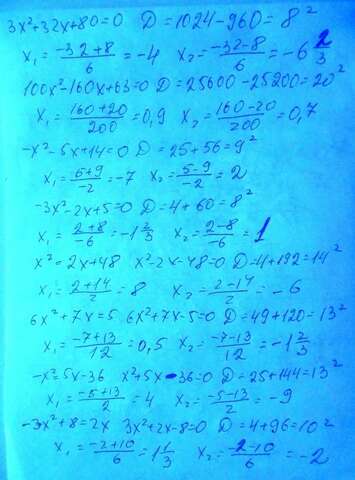 3x²+32x+80=0 D=1024-960=8²
x₁=(-32+8)/6=-4 x₂=(-32-8)/6=-6 2/3
100x²-160x+63=0 D=25600-25200=20²
x₁=(160+20)/200=0,9 x₂=(160-20)/200=0,7
-x²-5x+14=0 D=25+56=9²
x₁=(5+9)/-2=-7 x₂=(5-9)/-2=2
-3x²-2x+5=0 D=4+60=8²
x₁=(2+8)/-6=-1 2/3 x₂=(2-8)/-6=1
x²=2x+48 x²-2x-48=0 D=4+192=14²
x₁=(2+14)/2=8 x₂=(2-14)/2=-6
6x²+7x=5 6x²+7x-5=0 D=49+120=13²
x₁=(-7+13)/12=0,5 x₂=(-7-13)/12=-1 2/3
-x²=5x-36 x²+5x-36=0 D=25+144=13²
x₁=(-5+13)/2=4 x₂=(-5-13)/2=-9
-3x²+8=2x 3x²+2x-8=0 D=4+96=10²
x₁=(-2+10)/6=1 1/3 x₂=(-2-10)/6=-2